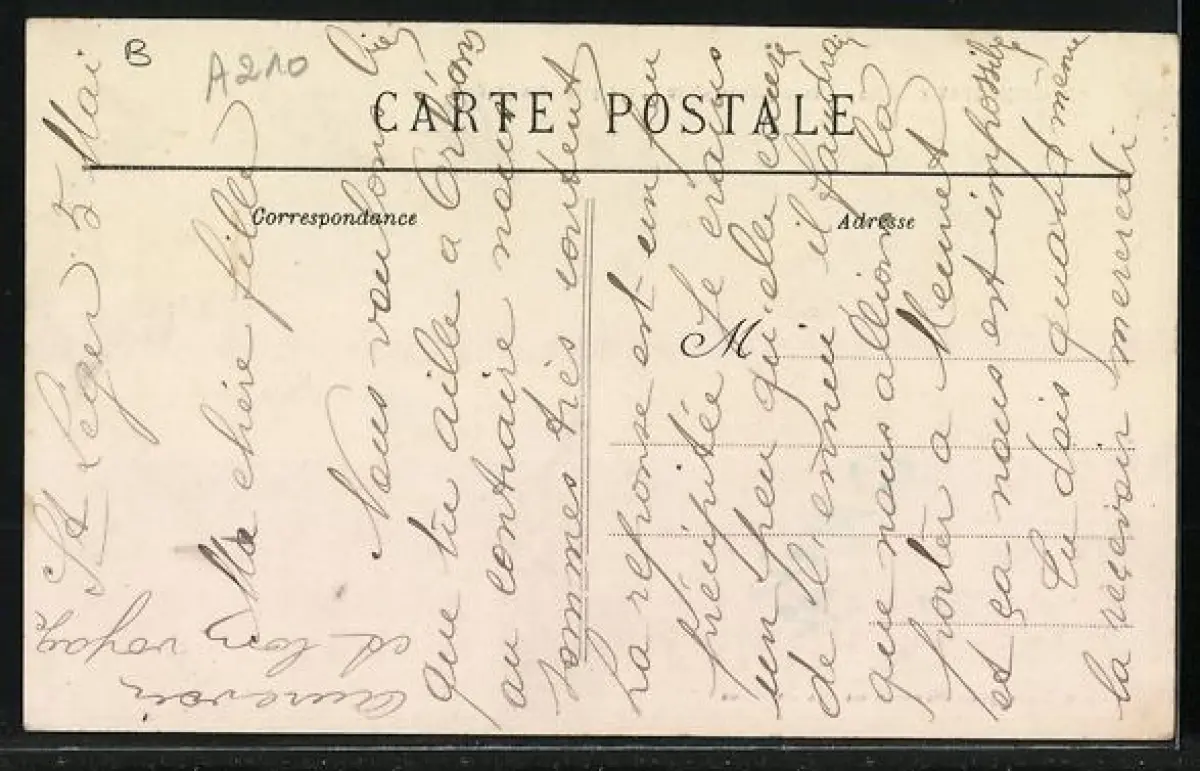 B
A210
CARTE POSTALE
Correspondance
Adresse
M
St Leger 5 Mai
Ma chère fille
Nous voulons bien
que tu aille a
au contraire nous
sommes très content
La reponse est un peu
précipitée Je crains
un peu qu'elle
de l'ennui il faudrai
que nous allions la
porter a Menet
et ça nous est impossible
Tu dois quand même
la reçevoir mercredi
aurevoir
et bon voyage